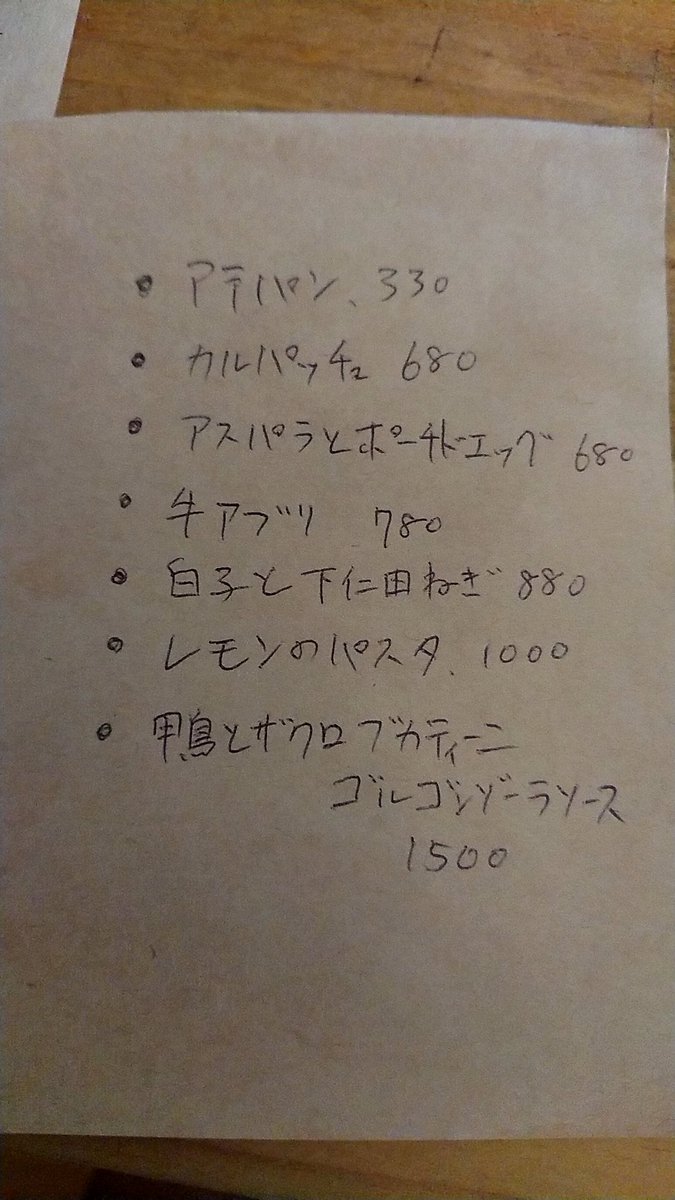 • アテパン、330
• カルパッチョ 680
• アスパラとポーチドエッグ 680
• 牛アブリ 780
• 白子と下仁田ねぎ 880
• レモンのパスタ、1000
• 鴨とザクロブカティーニ
ゴルゴンゾーラソース
1500